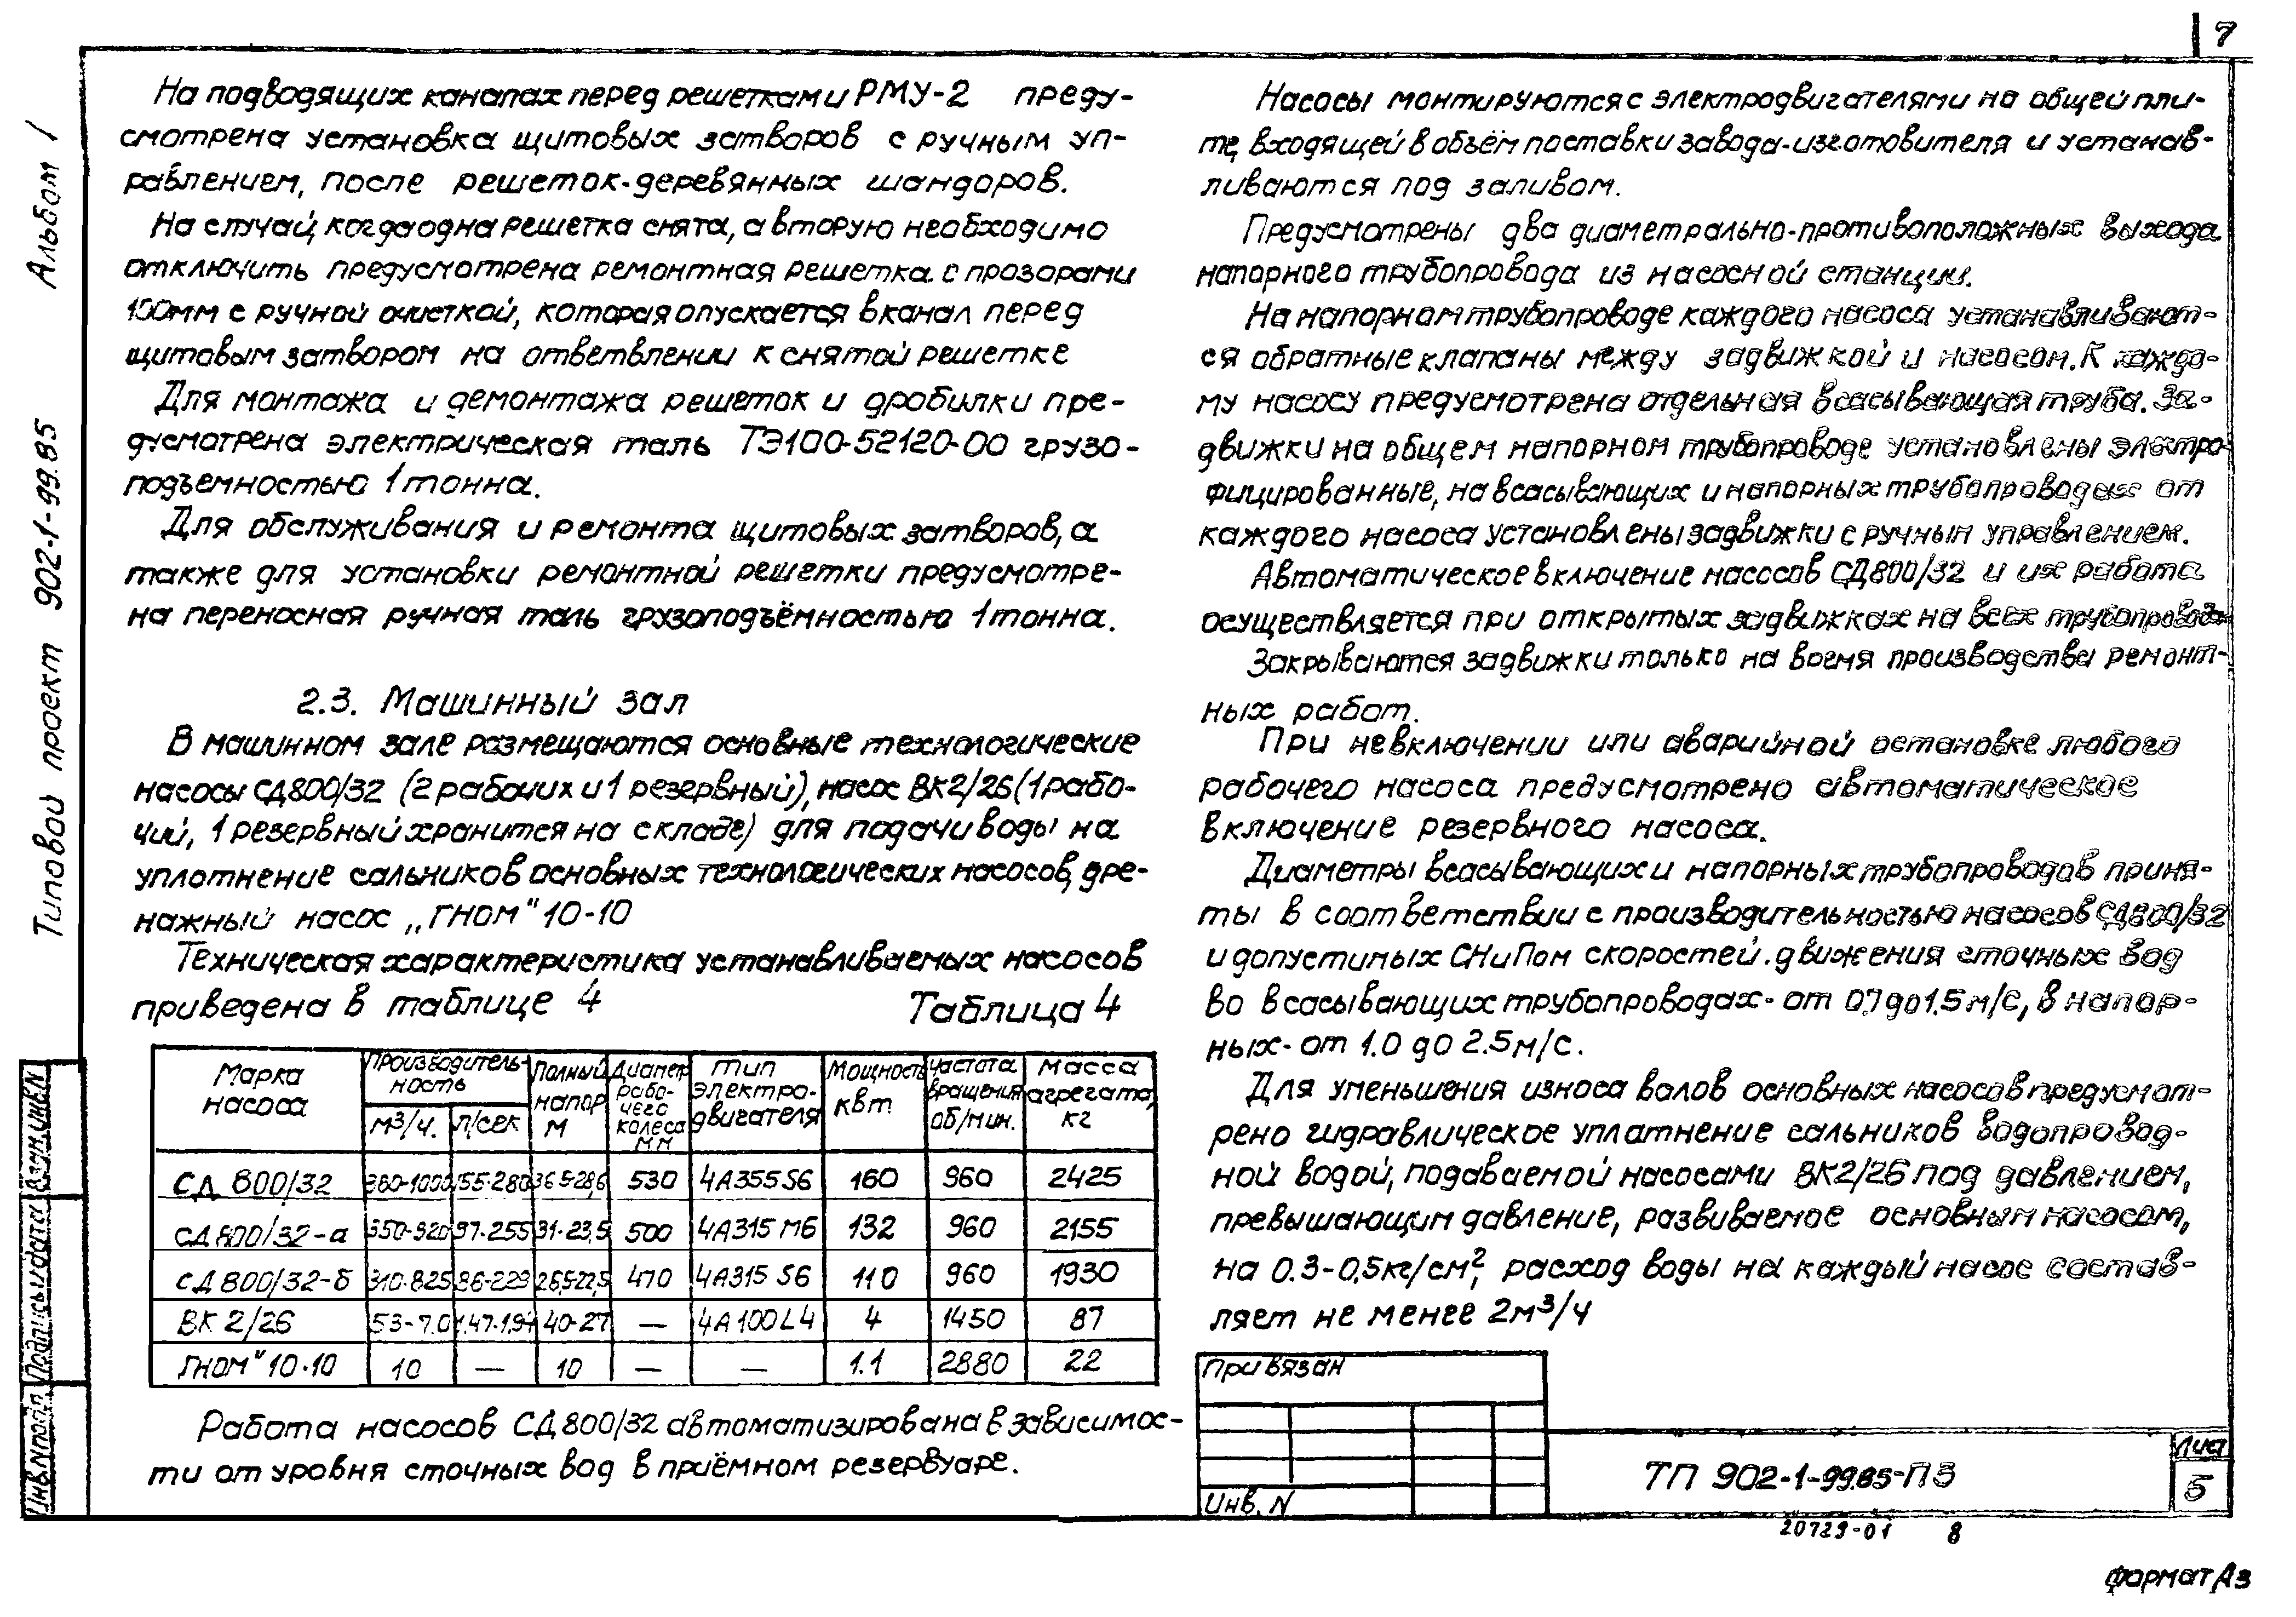 7
Альбом 1
Типовой проект 902-1-99.85
На подводящих каналах перед решетками РМУ-2 преду-
смотрена установка щитовых затворов с ручным уп-
равлением, после решеток-деревянных шандоров.
На случай, когда одна решетка снята, а вторую необходимо
отключить предусмотрена ремонтная решетка с прозорами
100мм с ручной очисткой, которая опускается в канал перед
щитовым затвором на ответвлении к снятой решетке
Для монтажа и демонтажа решеток и дробилки пре-
дусмотрена электрическая таль ТЭ100-52120-00 грузо-
подъемностью 1 тонна.
Для обслуживания и ремонта щитовых затворов, а
также для установки ремонтной решетки предусмотре-
на переносная ручная таль грузоподъёмностью 1 тонна.
2.3. Машинный зал
В машинном зале размещаются основные технологические
насосы СД800/32 (2 рабочих и 1 резервный), насос ВК2/26 (1 рабо-
чий, 1 резервный хранится на складе) для подачи воды на
уплотнение сальников основных технологических насосов, дре-
нажный насос „ГНОМ“ 10-10
Техническая характеристика устанавливаемых насосов
приведена в таблице 4
Таблица 4
Марка насоса | Производитель-ность м³/ч. л/сек | Полный напор М | Диаметр рабо-чего колеса мм | Тип электро-двигателя | Мощность квт | Частота вращения об/мин. | Масса агрегата, кг
СД 800/32 | 380-1000 | 155-280 | 36.5-28,6 | 530 | 4А355S6 | 160 | 960 | 2425
СД 800/32-а | 350-920 | 97-255 | 31-23,5 | 500 | 4А315М6 | 132 | 960 | 2155
СД 800/32-б | 310-825 | 86-229 | 26,5-22,5 | 470 | 4А315 S6 | 110 | 960 | 1930
ВК 2/26 | 53-7.0 | 1.47-1.94 | 40-27 | — | 4А100L4 | 4 | 1450 | 87
ГНОМ“ 10-10 | 10 | — | 10 | — | — | 1.1 | 2880 | 22
Работа насосов СД 800/32 автоматизирована в зависимос-
ти от уровня сточных вод в приёмном резервуаре.
Насосы монтируются с электродвигателями на общей пли-
те, входящей в объём поставки завода-изготовителя и устанав-
ливаются под заливом.
Предусмотрены два диаметрально-противоположных выхода
напорного трубопровода из насосной станции.
На напорном трубопроводе каждого насоса устанавливают-
ся обратные клапаны между задвижкой и насосом. К каждо-
му насосу предусмотрена отдельная всасывающая труба. За-
движки на общем напорном трубопроводе установлены электро-
фицированные, на всасывающих и напорных трубопроводах от
каждого насоса установлены задвижки с ручным управлением.
Автоматическое включение насосов СД800/32 и их работа
осуществляется при открытых задвижках на всех трубопроводах
Закрываются задвижки только на время производства ремонт-
ных работ.
При невключении или аварийной остановке любого
рабочего насоса предусмотрено автоматическое
включение резервного насоса.
Диаметры всасывающих и напорных трубопроводов приня-
ты в соответствии с производительностью насосов СД800/32
и допустимых СНиПом скоростей движения сточных вод
во всасывающих трубопроводах- от 0.7 до 1.5 м/с, в напор-
ных- от 1.0 до 2.5м/с.
Для уменьшения износа валов основных насосов предусмот-
рено гидравлическое уплатнение сальников водопровод-
ной водой, подаваемой насосами ВК2/26 под давлением,
превышающим давление, развиваемое основным насосом,
на 0.3-0,5кг/см², расход воды на каждый насос состав-
ляет не менее 2м³/ч
Привязан
Инв. N
ТП 902-1-99.85-ПЗ
Лист
5
20729-01 8
Формат А3
Инв.N подл. Подпись и дата Взам.инв.N